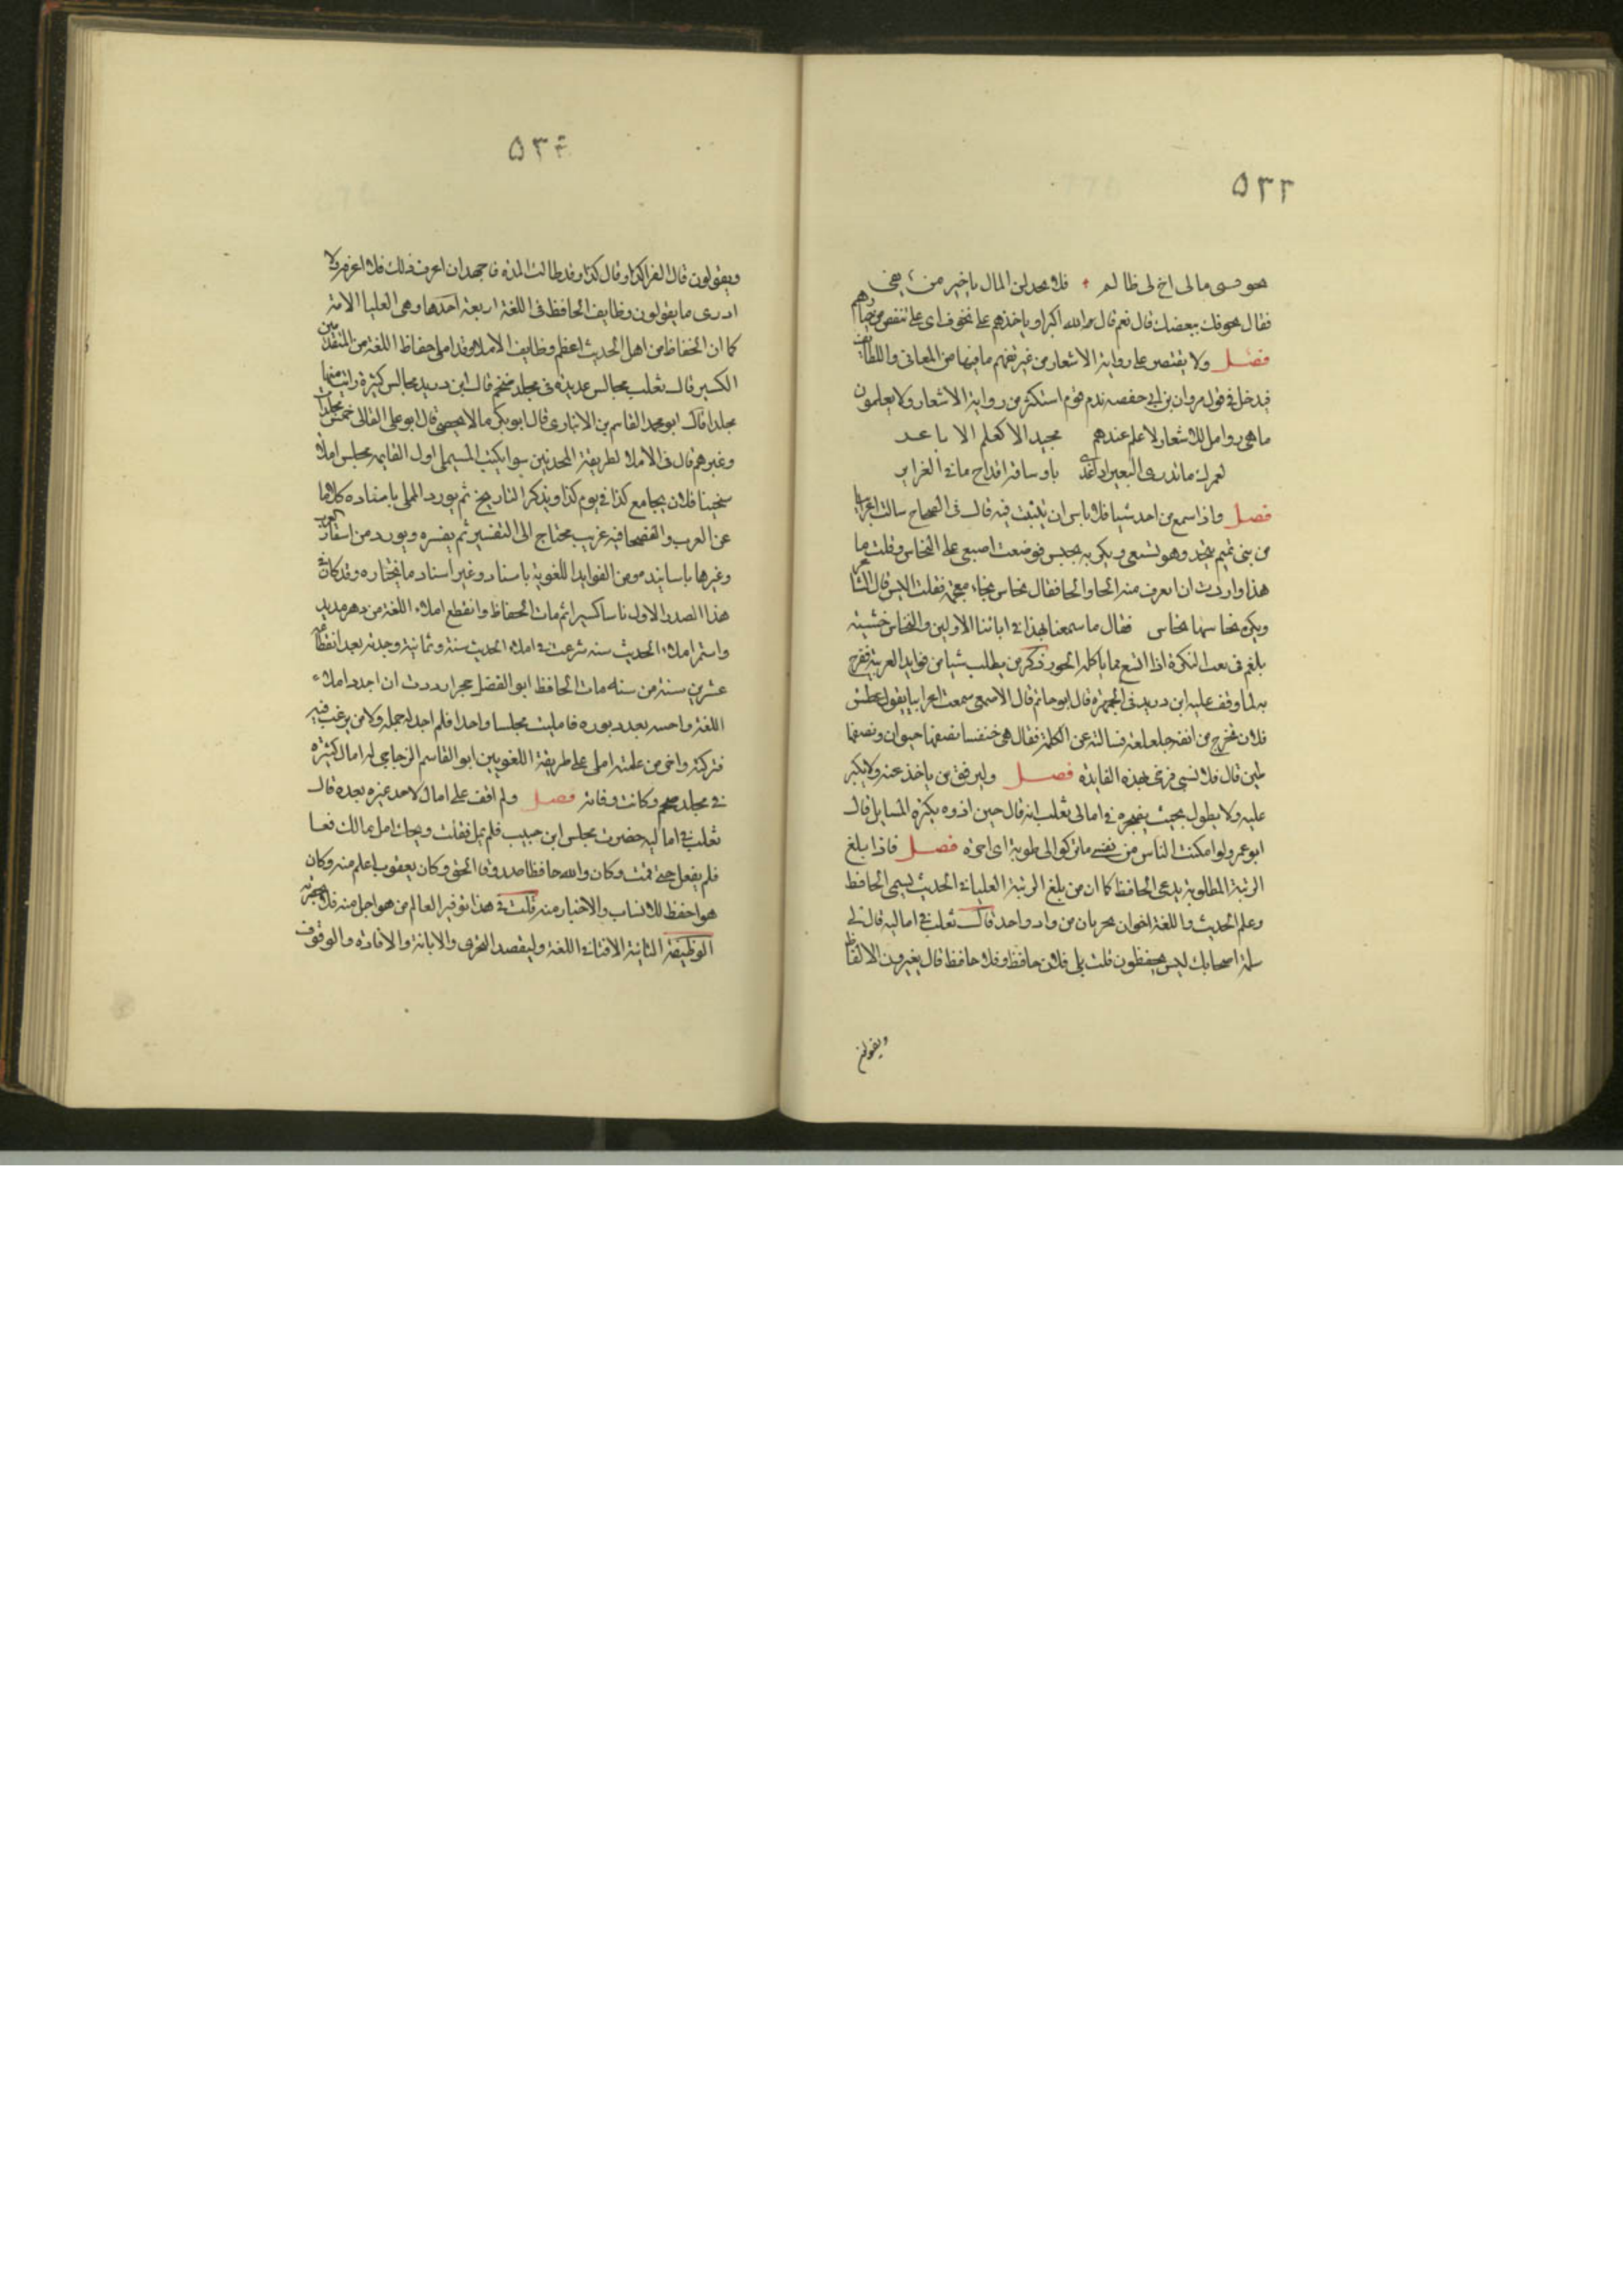 ٥٣٣
فلا تعدلن المال يا خير من
فقال نعم قال الله اكبر او ياخذهم على تخوف اى على تنقص من خيارهم
فصل ولا يقتصر على رواية الاشعار من غير تفهم ما فيها من المعانى واللطائف
فيدخل فى قول مروان بن ابى حفصه يذم قوم استكثر من رواية الاشعار ولا يعلمون
ما هى زوامل للاشعار لا علم عندهم بجيدها الا كعلم الاباعر
لعمرك ما يدرى البعير اذا غدى باوساقه او راح ما فى الغراير
فصل واذا سمع من احد شيا فلا باس ان يتثبت فيه قال فى الصحاح سالت اعرابيا
من بنى تميم بنجد وهو يستقى وبكرته نخيس فوضعت اصبعى على النخاس وقلت ما
هذا واردت ان اعرف منه الحا والخا فقال نخاس بخاء معجمة فقلت اليس قال الشاعر
وبكرة نخاسها نحاس فقال ما سمعنا بهذا فى ابائنا الاولين والنخاس خشبة
من يطلب شيا من فوايد العربية ففرح
به لما وقف عليه ابن دريد فى الجمهرة قال ابو حاتم قال الاصمعى سمعت اعرابيا يقول عطس
فلان فخرج من انفه جلعلعة فسالته عن الكلمة فقال هى خنفسا نصفها حيوان ونصفها
طين قال فلا انسى فرحى بهذه الفايدة فصل وليرفق بمن ياخذ عنه ولا يكثر
عليه ولا يطول بحيث يضجره فى امالى ثعلب انه قال حين اذوه بكثرة المسايل قال
ابو عمرو لو امكنت الناس من نفسى ما تركوا لى طوبة اى اجرة فصل فاذا بلغ
الرتبة المطلوبة يدعى الحافظ كما ان من بلغ الرتبة العليا فى الحديث يسمى الحافظ
وعلم الحديث واللغة اخوان يجريان من واد واحد قال ثعلب فى اماليه قال لى
سلمة اصحابك ليس يحفظون قلت بلى فلان حافظ وفلان حافظ قال يغيرون الالفاظ
ويقولون
٥٣٤
ويقولون قال الفرا كذا وقال كذا وقد طالت المدة فاجهد ان اعرف ذلك فلا اعرفه ولا
ادرى ما يقولون وظايف الحافظ فى اللغة اربعة احدها وهى العليا الاملا
كما ان الحفاظ من اهل الحديث اعظم وظايف الاملا وقد املى حفاظ اللغة من المتقدمين
الكثير قال ثعلب مجالس عديدة فى مجلد ضخم قال ابن دريد مجالس كثيرة رايت منها
مجلدا قال ابو محمد القاسم بن الانبارى قال ابو بكر ما لا يحصى قال ابو على القالى خمس مجلدات
وغيرهم قال فى الاملا لطريقة المحدثين سوا يكتب المستملى اول القايمه مجلس املاه
شيخنا فلان بجامع كذا فى يوم كذا ويذكر التاريخ ثم يورد المملى باسناده كلاما
عن العرب والفصحا فيه غريب يحتاج الى التفسير ثم يفسره ويورد من اشعار العرب
وغيرها باسانيده ومن الفوايد اللغوية باسناد وغير اسناد ما يختاره وقد كان
هذا الصدر الاول ناسا كثيرا ثم مات الحفاظ وانقطع املاء اللغة من دهر مديد
واستمر املاء الحديث شرعت فى املاء الحديث سنة وثمانية وجدته بعد انقطاعه
عشرين سنة من سنة مات الحافظ ابو الفضل حجر اردت ان اجدد املاء
اللغة فامليت مجلسا واحدا فلم اجد له حملة ولا من يرغب فيه
فتركته واخر من علمته املى على طريقة اللغويين ابو القاسم الزجاجى له امال كثيرة
فى مجلد ضخم وكانت وفاته فصل ولم اقف على امال لاحد غيره بعده قال
ثعلب فى اماليه حضرت مجلس ابن حبيب فلم يمل فقلت ويحك امل مالك
فلم يفعل حتى قمت وكان والله حافظا صدوقا الحق وكان يعقوب اعلم منه وكان
هو احفظ للانساب والاخبار منه قلت فى هذا توقير العالم من هو اجل منه فلا
الوظيفة الثانية الافتا فى اللغة وليقصد التحرى والابانة والافادة والوقوف